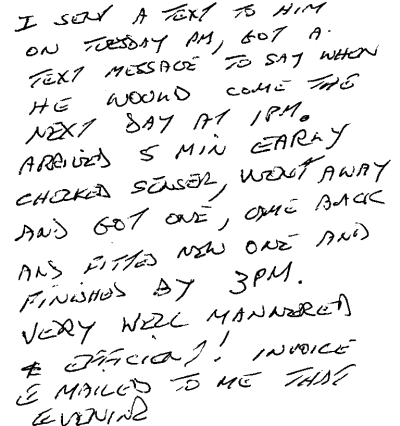 I SENT A TEXT TO HIM
ON TUESDAY PM, GOT A
TEXT MESSAGE TO SAY WHEN
HE WOULD COME THE
NEXT DAY AT 1PM.
ARRIVED 5 MIN EARLY
CHECKED SENSER, WENT AWAY
AND GOT ONE, CAME BACK
AND FITTED NEW ONE AND
FINISHED BY 3PM.
VERY WELL MANNERED
& EFFICIENT! INVOICE
E MAILED TO ME THAT
EVENING